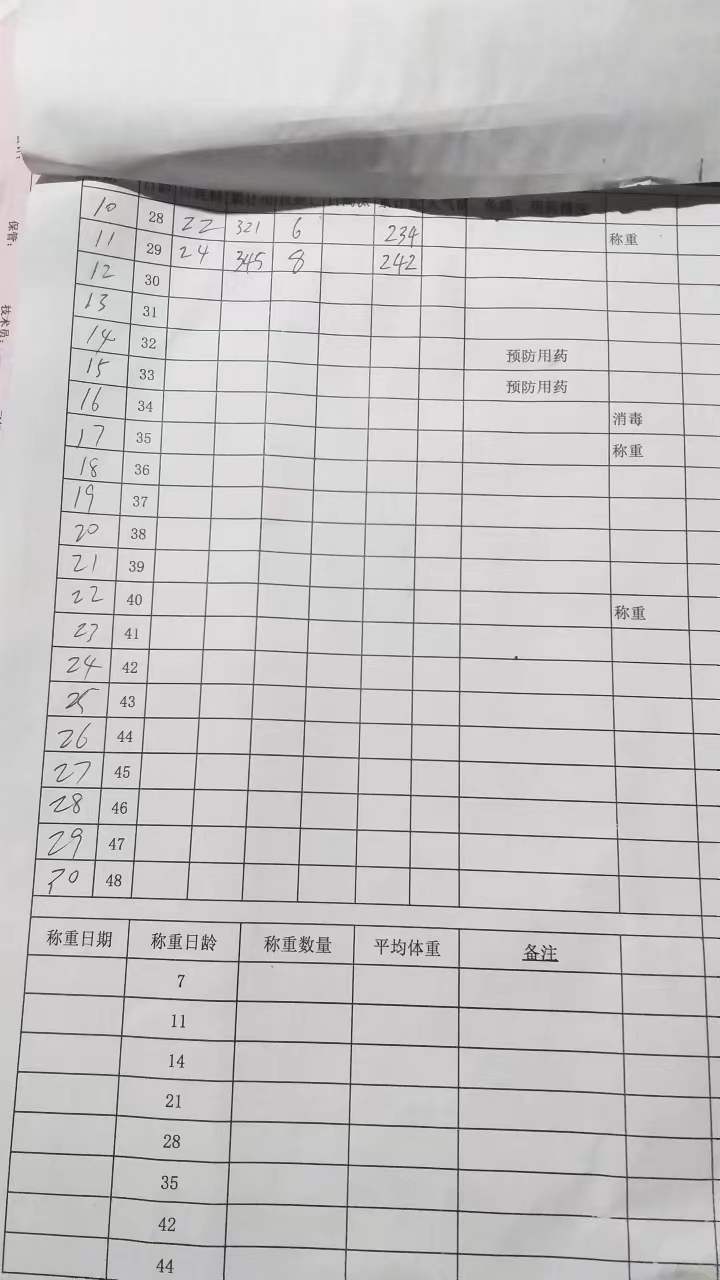 保管：
技术员：
10 28 22 321 6 234
11 29 24 345 8 242 称重
12 30
13 31
14 32 预防用药
15 33 预防用药
16 34 消毒
17 35 称重
18 36
19 37
20 38
21 39
22 40 称重
23 41
24 42
25 43
26 44
27 45
28 46
29 47
30 48
称重日期 称重日龄 称重数量 平均体重 备注
7
11
14
21
28
35
42
44